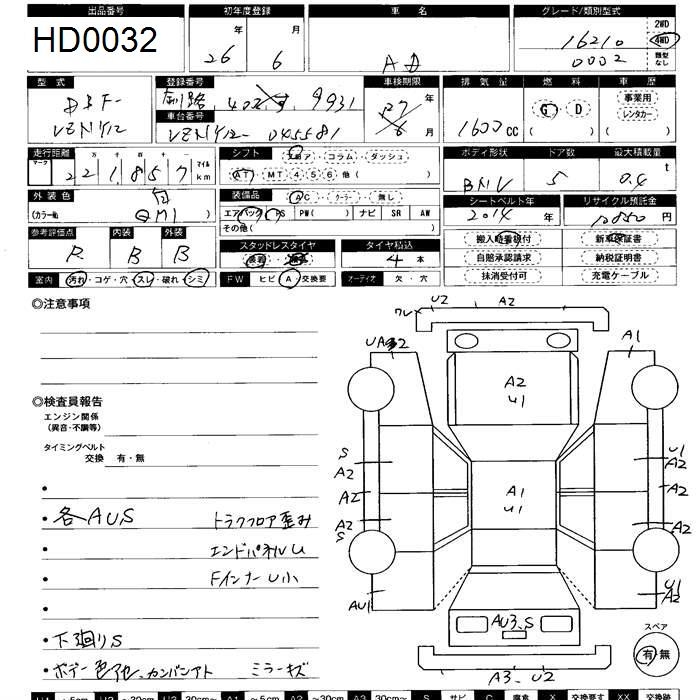 出品番号 初年度登録 車名 グレード/類別型式
HD0032 26年 6月 AD 16210 0002 2WD 4WD 類型なし
型式 登録番号 車検期限 排気量 燃料 車歴
DBF- 釧路 402 す 9931 27年 G・D 事業用
VZNY12 車台番号 VZNY12-045581 6月 1600cc ( ) レンタカー ( )
走行距離 シフト フロア・コラム・ダッシュ ボディ形状 ドア数 最大積載量
マーク 十万 千百十一
221,857 マイル km AT・MT 4 5 6 他( ) BNV 5 0.4 t
外装色 装備品 AC・クーラー・無し シートベルト年 リサイクル預託金
(カラーNo. QM1) エアバック( )PS PW( ) ナビ SR AW 2014年 円
参考評価点 内装 外装 その他( ) 搬入時看板付 新車保証書
R B B スタッドレスタイヤ タイヤ積込 自賠承認請求 納税証明書
4本 抹消受付可 充電ケーブル
室内 汚れ・コゲ・穴・スレ・破れ・シミ FW ヒビ・A・交換要 オーディオ 欠・穴
◎注意事項
U2 A2
ワレ
UA2 A1
◎検査員報告
エンジン関係
(異音・不調等)
タイミングベルト
交換 有・無
A2
U1
S U1
A2 A2
A2 A1 A2
U1
A2 A2
S
・各AUS トラクフロア歪み
エンドパネルU
Fインナー U小
U1
AU1 A2
AU3.S
・下廻りS
スペア
有・無
・ボデー色アセ、カンバンアト ミラーキズ
A3. U2